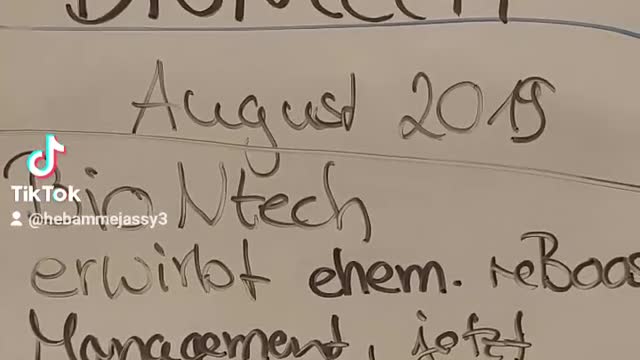 BioNTech
August 2019
BioNtech
TikTok
@hebammejassy3
erwirbt ehem. reBoos
Management, jetzt